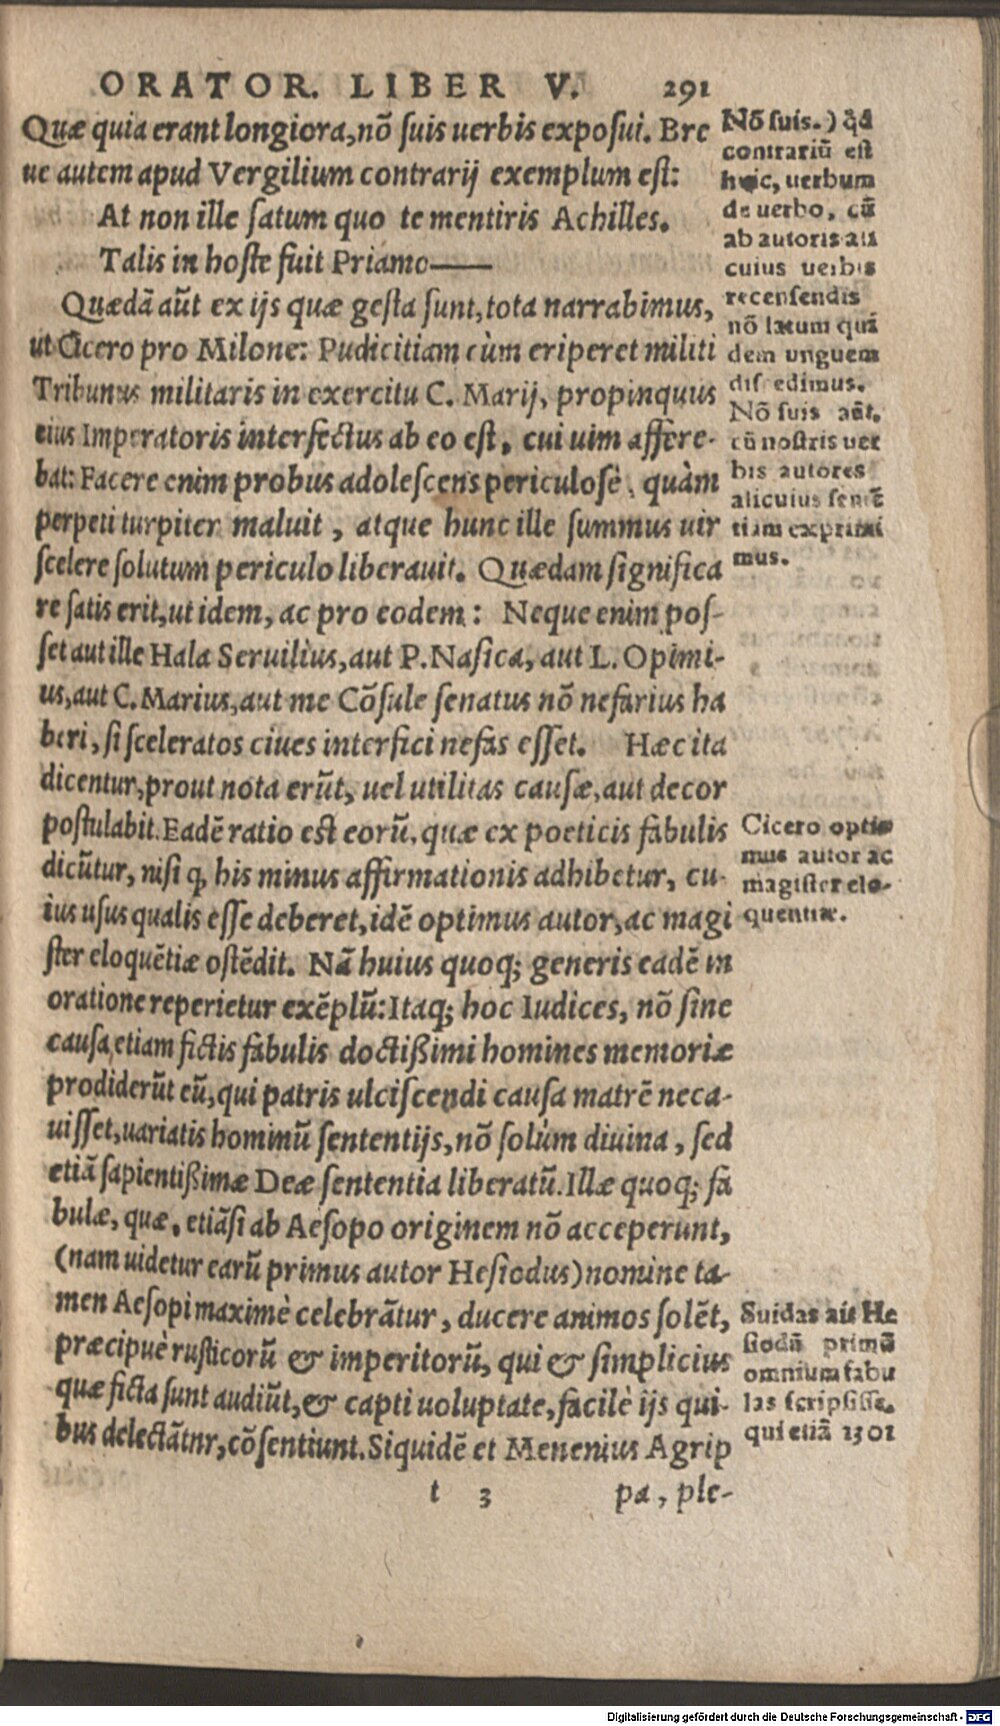 ORATOR. LIBER V. 291
Quæ quia erant longiora, nõ suis uerbis exposui. Bre
ue autem apud Vergilium contrarij exemplum est:
At non ille satum quo te mentiris Achilles.
Talis in hoste fuit Priamo——
Quædã aũt ex ijs quæ gesta sunt, tota narrabimus,
ut Cicero pro Milone: Pudicitiam cùm eriperet militi
Tribunus militaris in exercitu C. Marij, propinquus
eius Imperatoris interfectus ab eo est, cui uim affere-
bat: Facere enim probus adolescens periculosè, quàm
perpeti turpiter maluit, atque hunc ille summus uir
scelere solutum periculo liberauit. Quædam significa
re satis erit, ut idem, ac pro eodem: Neque enim pos-
set aut ille Hala Seruilius, aut P. Nasica, aut L. Opimi-
us, aut C. Marius, aut me Cõsule senatus nõ nefarius ha
beri, si sceleratos ciues interfici nefas esset. Hæc ita
dicentur, prout nota erũt, uel utilitas causæ, aut decor
postulabit. Eadẽ ratio est eorũ, quæ ex poeticis fabulis
dicũtur, nisi ꝙ his minus affirmationis adhibetur, cu-
ius usus qualis esse deberet, idẽ optimus autor, ac magi
ster eloquẽtiæ ostẽdit. Nã huius quoq; generis eadẽ in
oratione reperietur exẽplũ: Itaq; hoc Iudices, nõ sine
causa, etiam fictis fabulis doctißimi homines memoriæ
prodiderũt eũ, qui patris ulciscendi causa matrẽ neca-
uisset, uariatis hominũ sententijs, nõ solùm diuina, sed
etiã sapientißimæ Deæ sententia liberatũ. Illæ quoq; fa
bulæ, quæ, etiãsi ab Aesopo originem nõ acceperunt,
(nam uidetur earũ primus autor Hesiodus) nomine ta-
men Aesopi maximè celebrãtur, ducere animos solẽt,
præcipuè rusticorũ & imperitorũ, qui & simplicius
quæ ficta sunt audiũt, & capti uoluptate, facilè ijs qui-
bus delectãtnr, cõsentiunt. Siquidẽ et Menenius Agrip
t 3 pa, ple-
Nõ suis.) qd
contrariũ est
huic, uerbum
de uerbo, cũ
ab autoris ali
cuius uerbis
recensendis
nõ latum qui
dem unguem
discedimus.
Nõ suis aũt,
cũ nostris uer
bis autores
alicuius sentẽ
tiam exprimi
mus.
Cicero optie
mus autor ac
magister elo-
quentiæ.
Suidas ait He
siodũ primũ
omnium fabu
las scripsisse.
qui etiã 1301
Digitalisierung gefördert durch die Deutsche Forschungsgemeinschaft - DFG